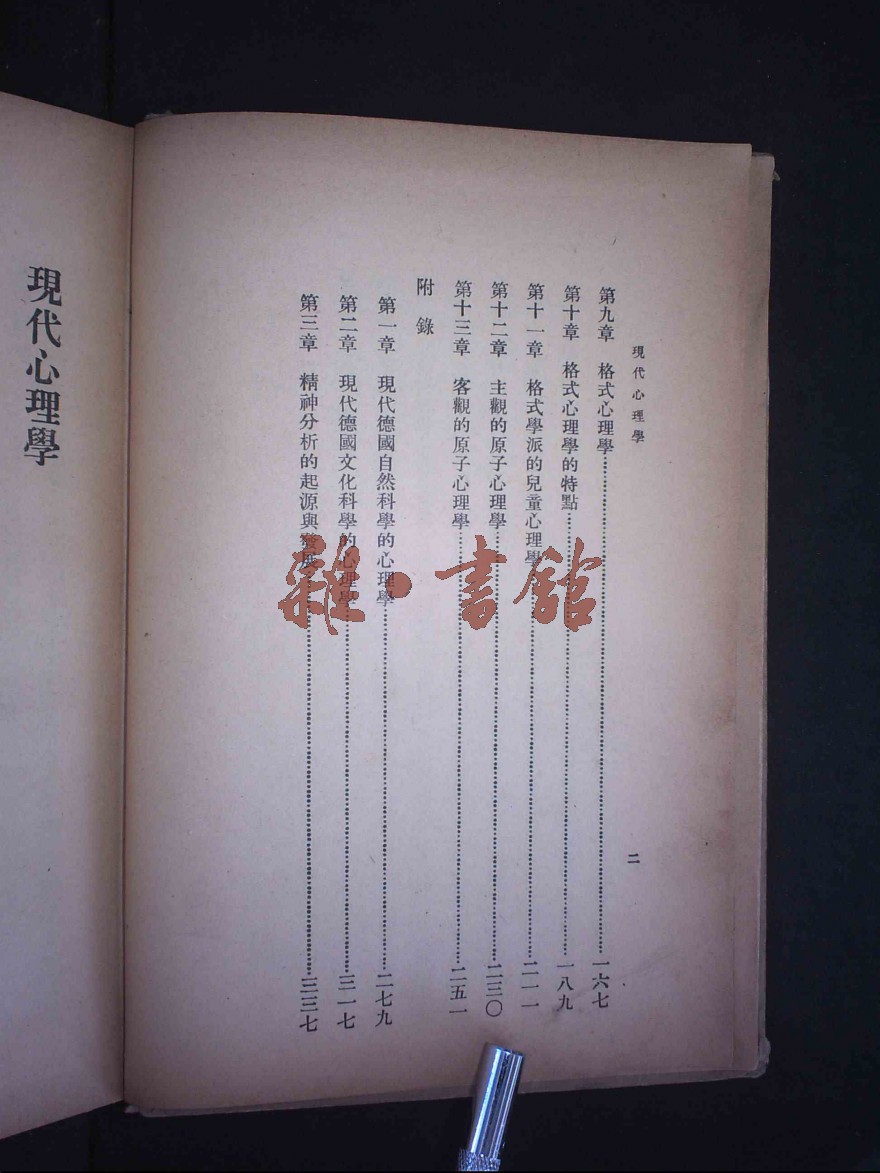 現代心理學
二
第九章 格式心理學……一六七
第十章 格式心理學的特點……一八九
第十一章 格式學派的兒童心理學……二一一
第十二章 主觀的原子心理學……二三〇
第十三章 客觀的原子心理學……二五一
附錄
第一章 現代德國自然科學的心理學……二七九
第二章 現代德國文化科學的心理學……三一七
第三章 精神分析的起源與發展……三三七
現代心理學
雜·書館